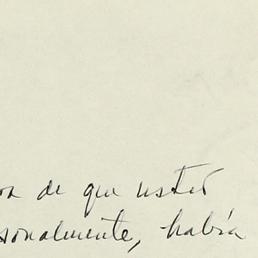 de que usted
sonalmente, había